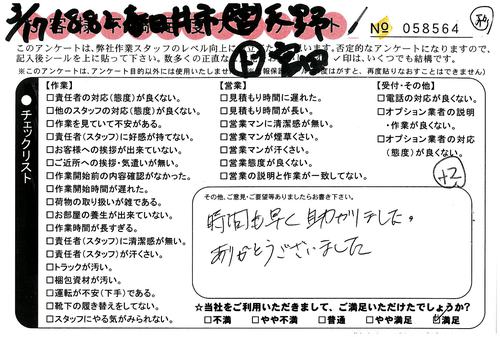 3/17
№ 058564
このアンケートは、弊社作業スタッフのレベル向上に
います。否定的なアンケートになりますので、
記入後シールを上に貼って下さい。数多くの正直な
✓印は、いくつでも結構です。
(※このアンケートは、アンケート目的以外には使用いたしません
報保護はがすと、再度貼りなおすことはできません)
チェックリスト
【作業】
□責任者の対応(態度)が良くない。
□他のスタッフの対応(態度)が良くない。
□作業を見ていて不安がある。
□責任者(スタッフ)に好感が持てない。
□お客様への挨拶が出来ていない。
□ご近所への挨拶・気遣いが無い。
□作業開始前の内容確認がなかった。
□作業開始時間が遅れた。
□荷物の取り扱いが雑である。
□お部屋の養生が出来ていない。
□作業時間が長すぎる。
□責任者(スタッフ)に清潔感が無い。
□責任者(スタッフ)が汗くさい。
□トラックが汚い。
□梱包資材が汚い。
□運転が不安(下手)である。
□靴下の履き替えをしてない。
□スタッフにやる気がみられない。
【営業】
□見積もり時間に遅れた。
□見積もり時間が長い。
□営業マンに清潔感が無い。
□営業マンが煙草くさい。
□営業マンが汗くさい。
□営業態度が良くない。
□営業の説明と作業が一致してない。
【受付・その他】
□電話の対応が良くない。
□オプション業者の説明
・作業が良くない。
□オプション業者の対応
(態度)が良くない。
+2
その他、ご意見・ご要望等ありましたらお書き下さい。
時間も早く助かりました。
ありがとうございました
☆当社をご利用いただきまして、ご満足いただけたでしょうか?
□不満 □やや不満 □普通 □やや満足 ☑満足